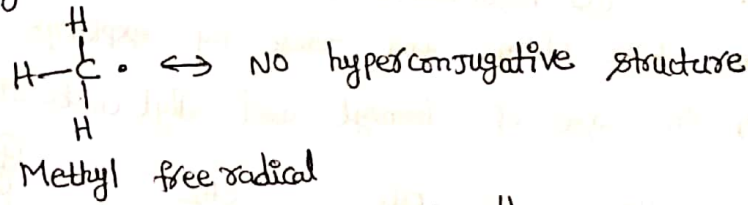 H
H—C• ↔ NO hyperconjugative structure
H
Methyl free radical